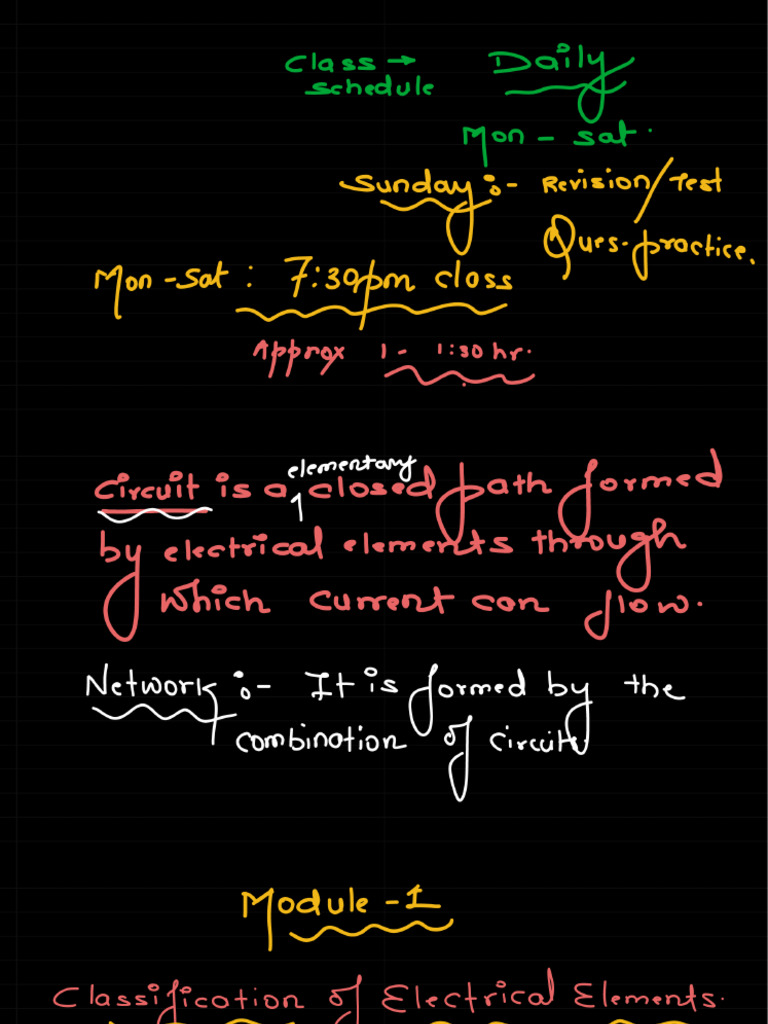 Class → Daily
schedule
Mon - sat.
Sunday :- Revision/Test
Ques. practice.
Mon-Sat : 7:30pm class
Approx 1 - 1:30 hr.
elementary
Circuit is a closed path formed
by electrical elements through
which current can flow.
Network :- It is formed by the
combination of circuits
Module -1
Classification of Electrical Elements.